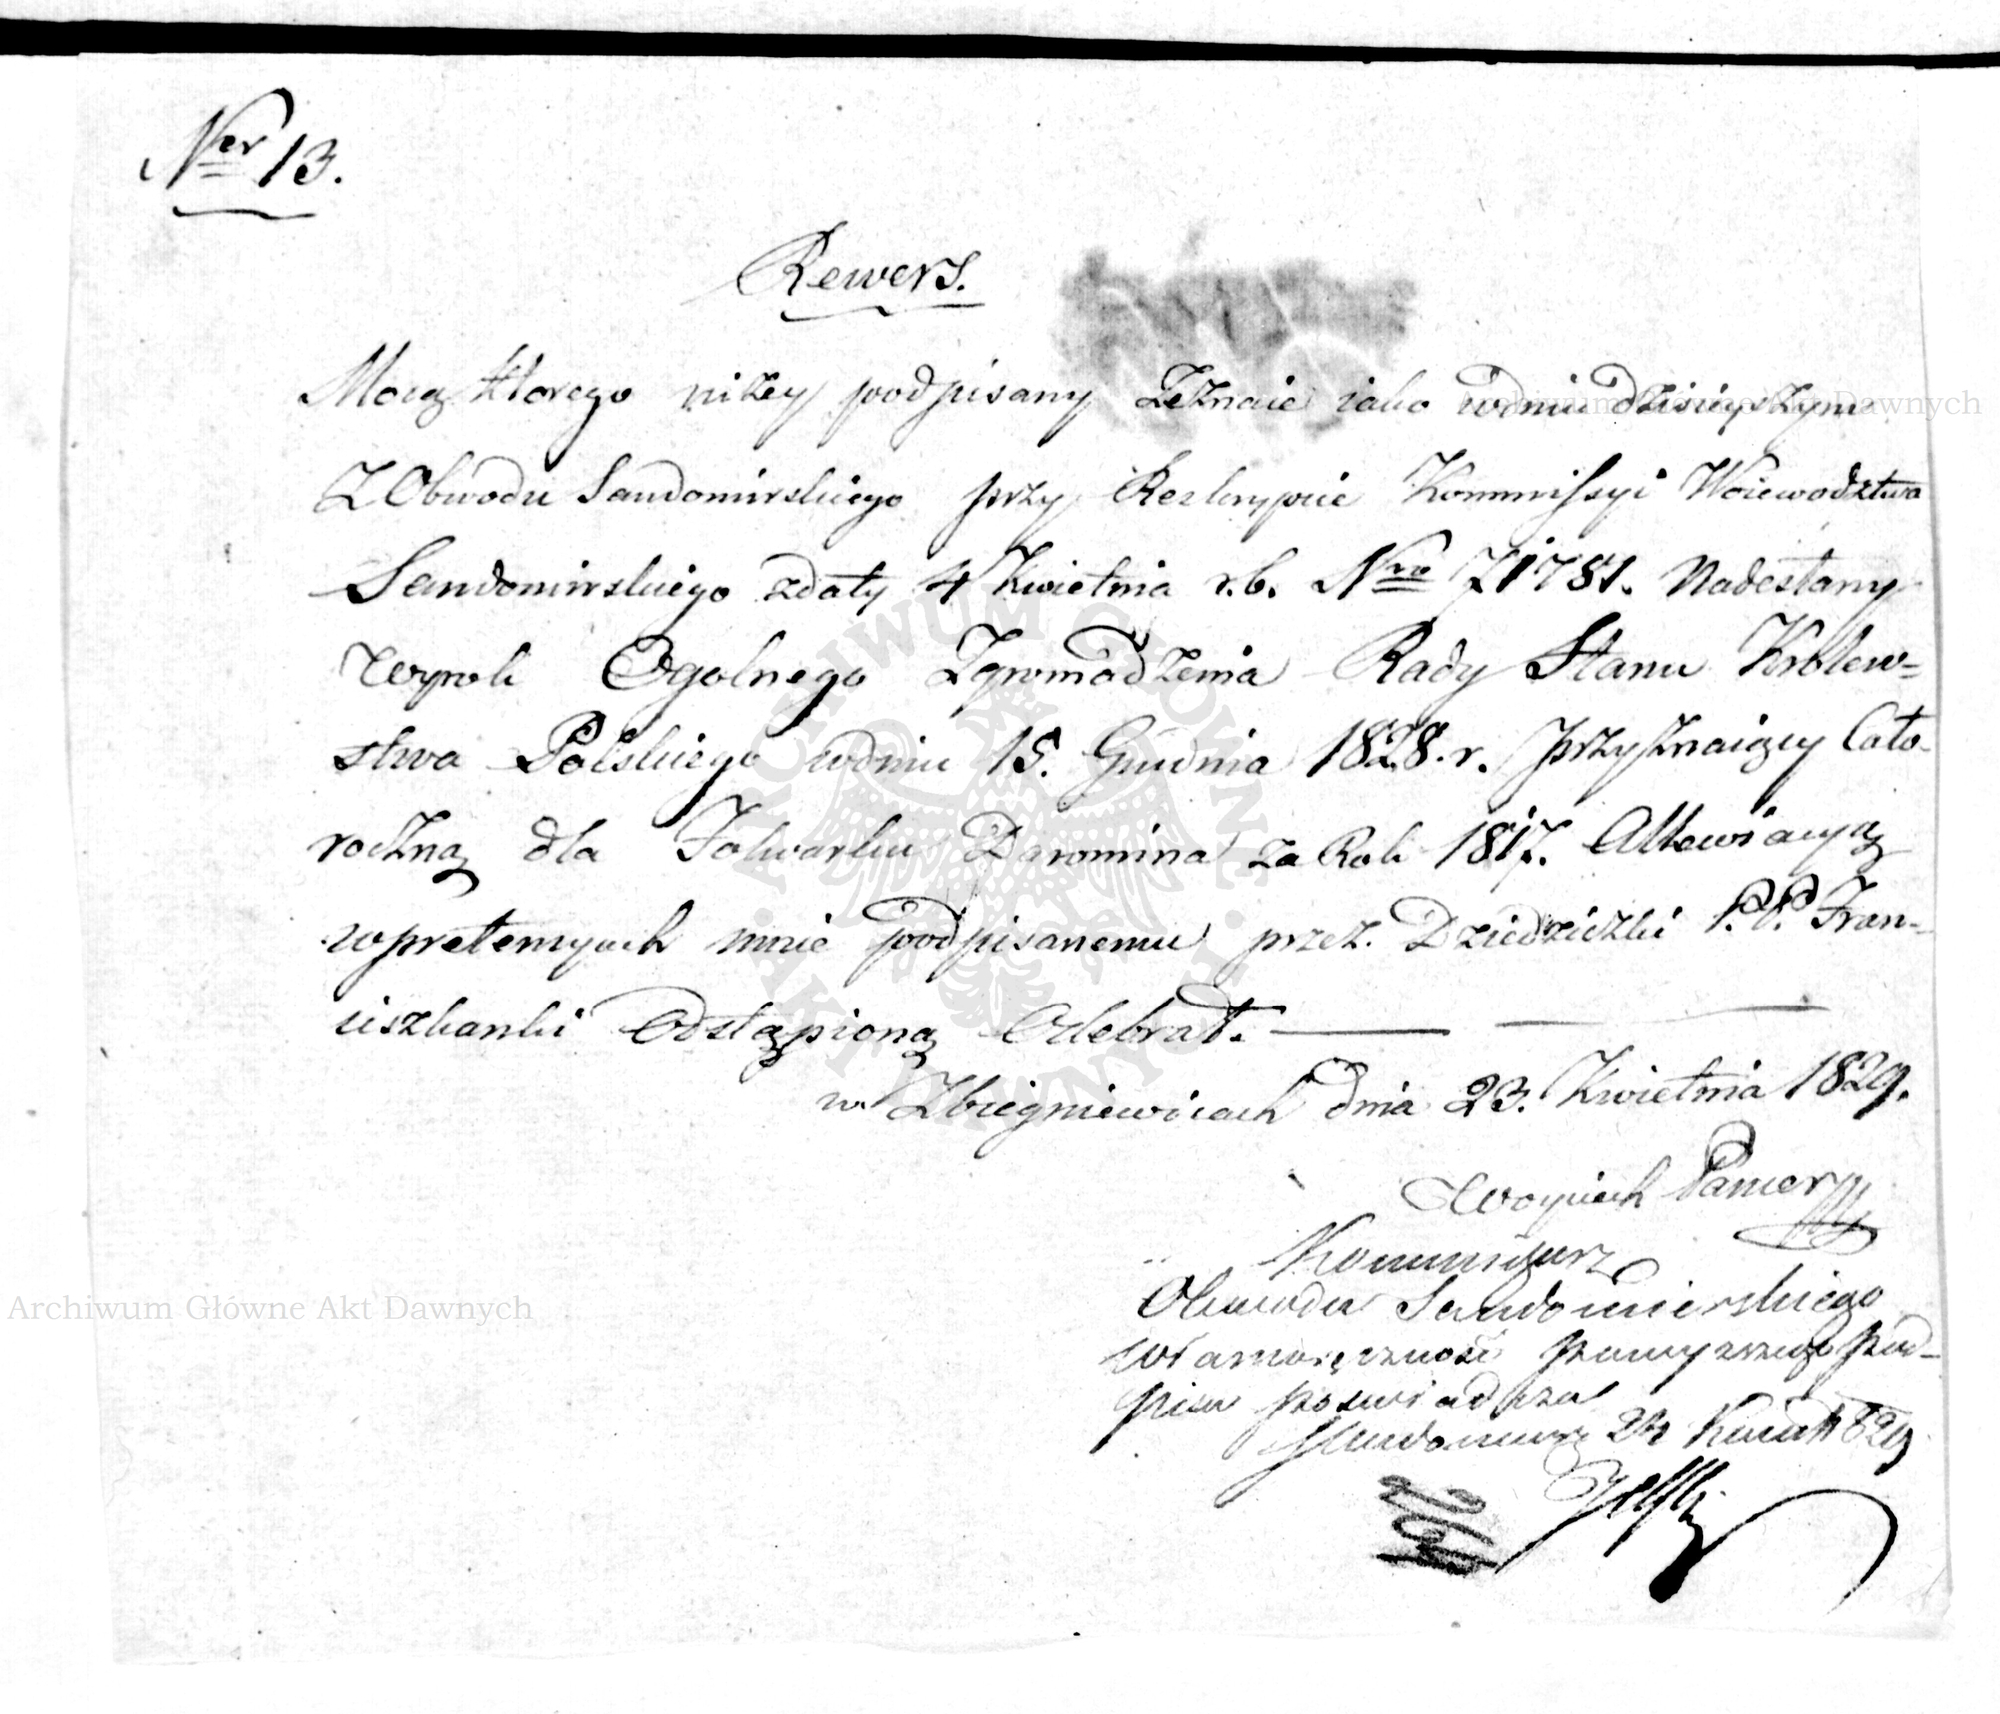 Ner 13.
Rewers.
Mocą ktorego niżey podpisany zeznaie iako wdniu dzisieyszym
Z Obwodu Sandomirskiego przy Reskrypcie Kommissyi Woiewodztwa
Sandomirskiego zdaty 4 Kwietnia r.b. Nro 71781. Nadesłany
Wyrok Ogolnego Zgromadzenia Rady Stanu Krolew-
stwa Polskiego wdniu 15. Grudnia 1828. r. przyznaiący Cało-
roczną dla Folwarku Daromina za Rok 1817. Allewiacyą
wpretensyach mnie podpisanemu przez Dziedziczki P.P. Fran-
ciszkanki Odstąpioną Odebrał.
w Zbigniewicach dnia 23. Kwietnia 1829.
Woyciech Pamer
Kommissarz
Obwodu Sandomierskiego
Własnoręczność powyższego pod-
pisu poswiadcza
Sandomierz 24 Kwiet 1829
Archiwum Główne Akt Dawnych
Archiwum Główne Akt Dawnych
ARCHIWUM GŁÓWNE
AKT DAWNYCH